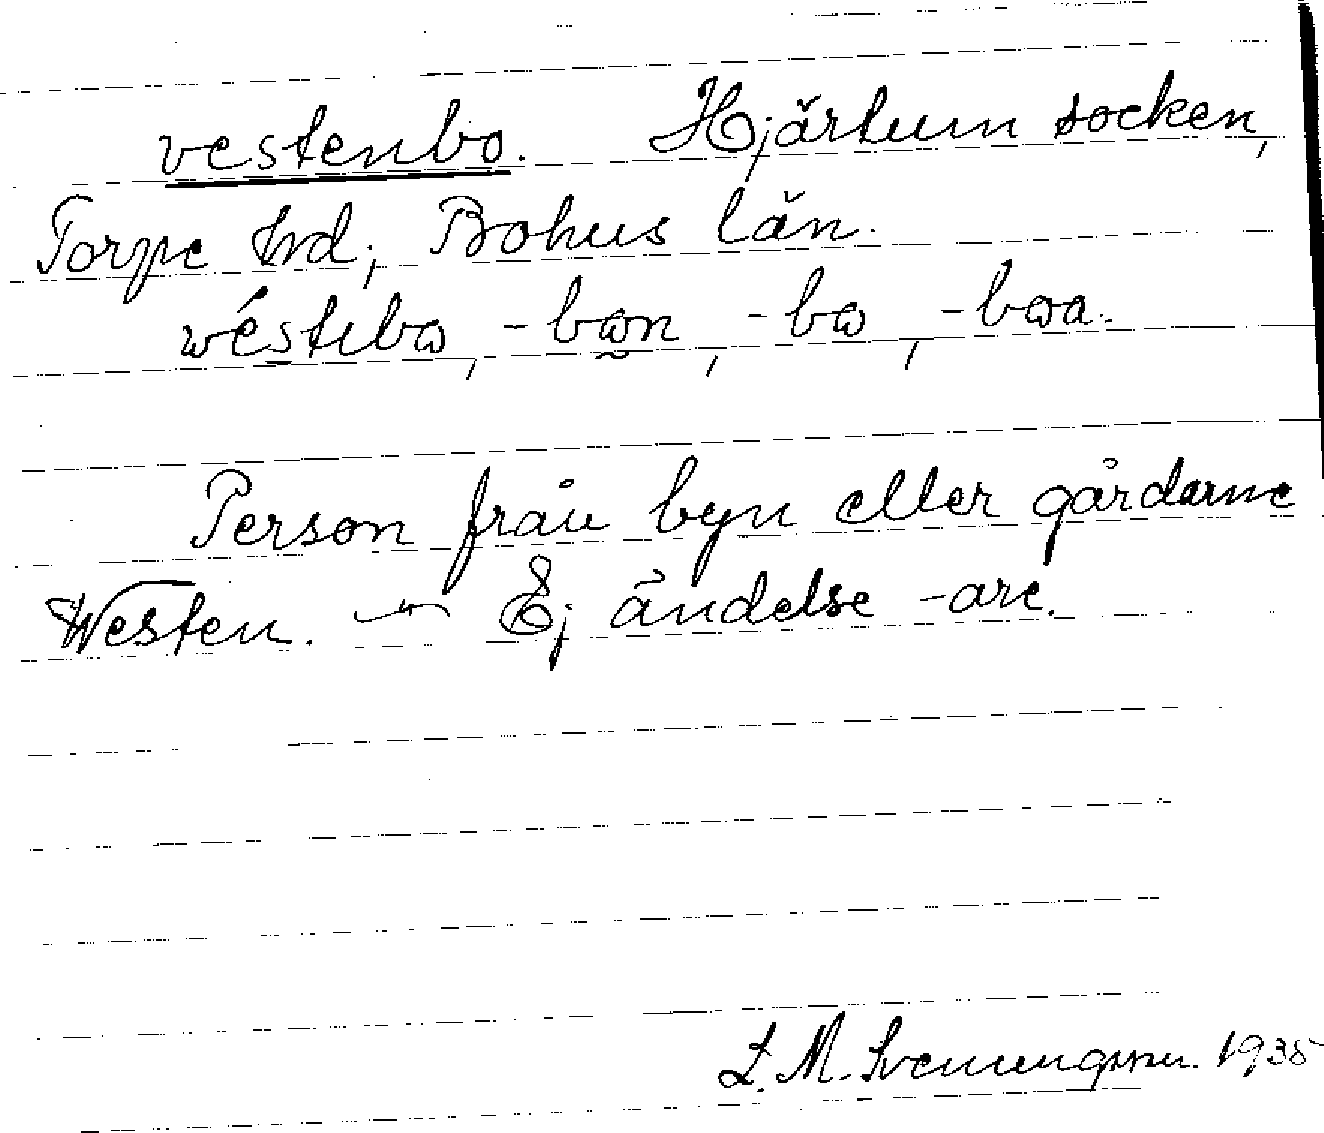 vestenbo. Hjärtum socken,
Torpe hrd; Bohus län.
wéstebω, -bωn, -bω, -bωa.
Person från byn eller gårdarne
Westen. — Ej ändelse -are.
L. M. Svenungsson. 1935